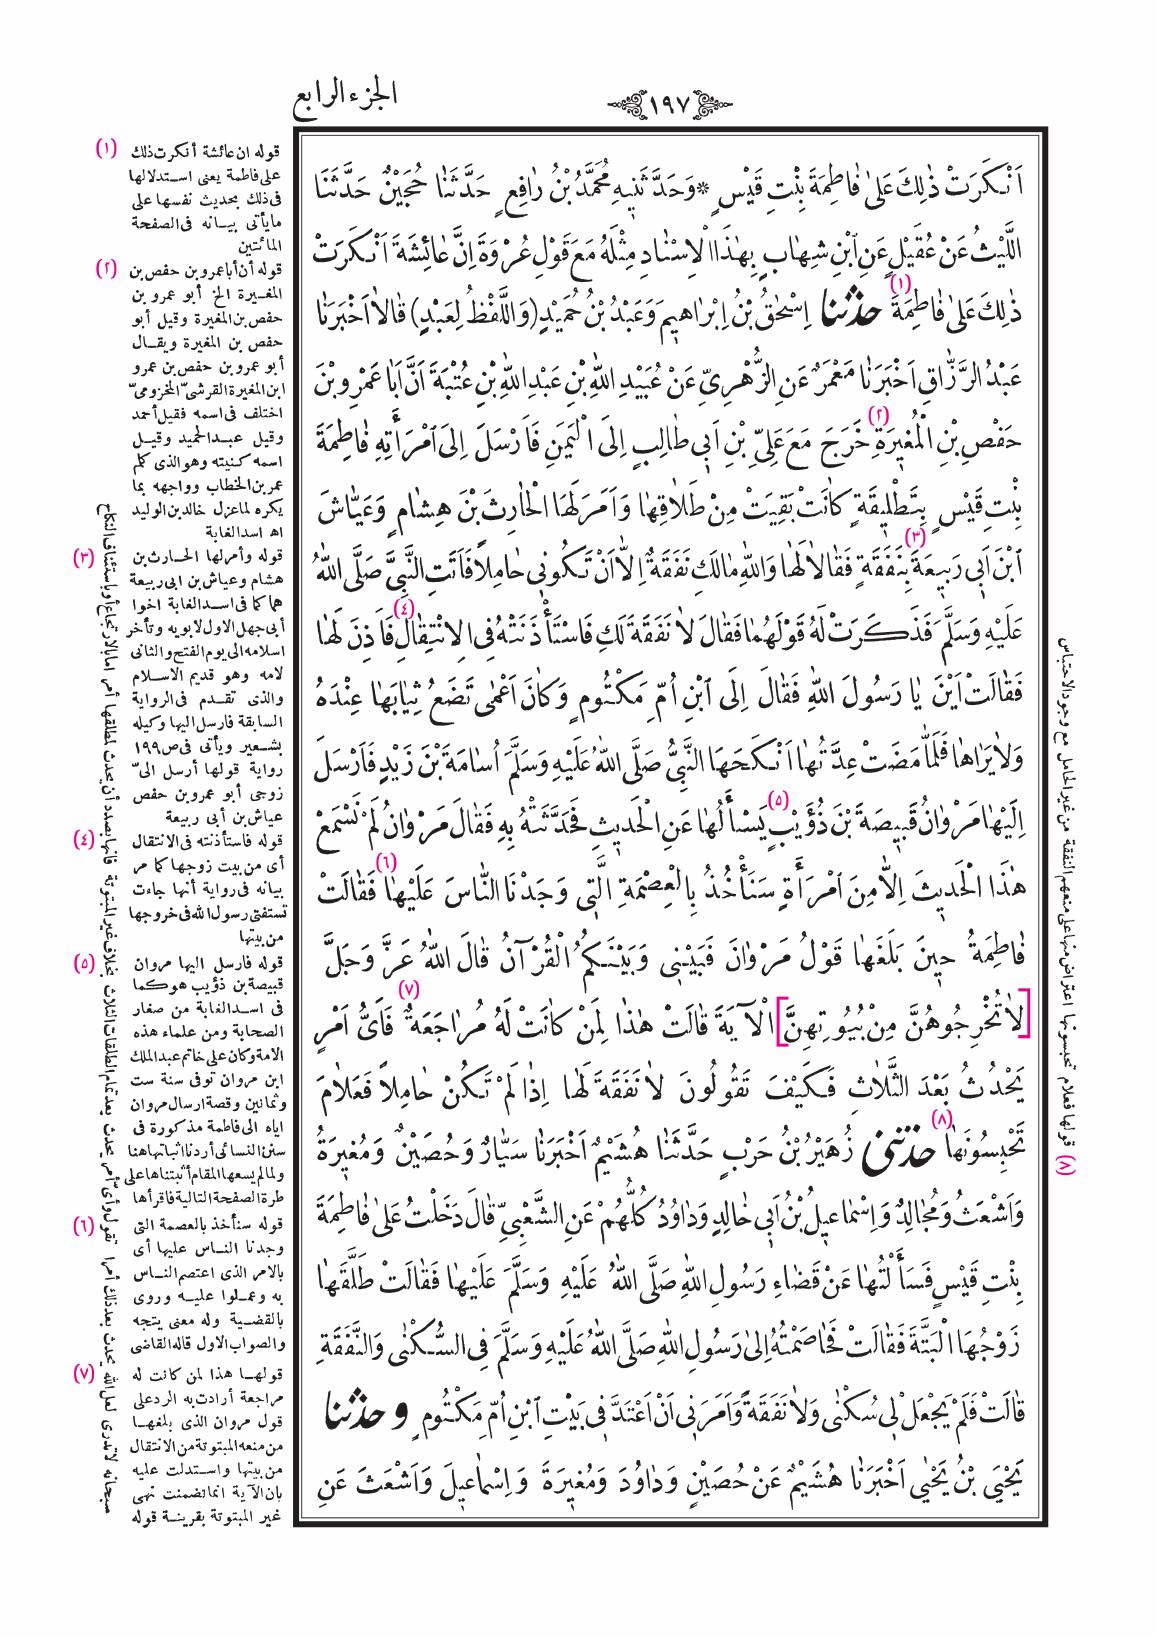 الجزء الرابع
١٩٧
اَنْكَرَتْ ذٰلِكَ عَلىٰ فٰاطِمَةَ بِنْتِ قَيْسٍ * وَحَدَّثَنيهِ مُحَمَّدُ بْنُ رٰافِعٍ حَدَّثَنٰا حُجَيْنٌ حَدَّثَنَا
اللَّيْثُ عَنْ عُقَيْلٍ عَنِ ابْنِ شِهٰابٍ بِهٰذَا الْاِسْنٰادِ مِثْلَهُ مَعَ قَوْلِ عُرْوَةَ اِنَّ عٰائِشَةَ اَنْكَرَتْ
ذٰلِكَ عَلىٰ فٰاطِمَةَ (١) حدثنا اِسْحٰقُ بْنُ اِبْرٰاهيمَ وَعَبْدُ بْنُ حُمَيْدٍ (وَاللَّفْظُ لِعَبْدٍ) قٰالاٰ اَخْبَرَنٰا
عَبْدُ الرَّزّٰاقِ اَخْبَرَنٰا مَعْمَرٌ عَنِ الزُّهْرِيِّ عَنْ عُبَيْدِ اللّٰهِ بْنِ عَبْدِ اللّٰهِ بْنِ عُتْبَةَ اَنَّ اَبٰا عَمْرِو بْنَ
حَفْصِ بْنِ الْمُغيرَةِ (٢) خَرَجَ مَعَ عَلِيِّ بْنِ اَبي طٰالِبٍ اِلَى الْيَمَنِ فَاَرْسَلَ اِلَى امْرَأَتِهِ فٰاطِمَةَ
بِنْتِ قَيْسٍ بِتَطْليقَةٍ كٰانَتْ بَقِيَتْ مِنْ طَلاٰقِهٰا وَاَمَرَ لَهَا الْحٰارِثَ بْنَ هِشٰامٍ وَعَيّٰاشَ
ابْنَ اَبي رَبيعَةَ بِنَفَقَةٍ (٣) فَقٰالاٰ لَهٰا وَاللّٰهِ مٰالَكِ نَفَقَةٌ اِلاّٰ اَنْ تَكُوني حٰامِلاً فَاَتَتِ النَّبِيَّ صَلَّى اللّٰهُ
عَلَيْهِ وَسَلَّمَ فَذَكَرَتْ لَهُ قَوْلَهُمٰا فَقٰالَ لاٰ نَفَقَةَ لَكِ فَاسْتَأْذَنَتْهُ فِى الِانْتِقٰالِ (٤) فَاَذِنَ لَهٰا
فَقٰالَتْ اَيْنَ يٰا رَسُولَ اللّٰهِ فَقٰالَ اِلَى ابْنِ اُمِّ مَكْتُومٍ وَكٰانَ اَعْمٰى تَضَعُ ثِيٰابَهٰا عِنْدَهُ
وَلاٰ يَرٰاهٰا فَلَمّٰا مَضَتْ عِدَّتُهٰا اَنْكَحَهَا النَّبِيُّ صَلَّى اللّٰهُ عَلَيْهِ وَسَلَّمَ اُسٰامَةَ بْنَ زَيْدٍ فَاَرْسَلَ
اِلَيْهٰا مَرْوٰانُ قَبيصَةَ بْنَ ذُؤَيْبٍ (٥) يَسْأَلُهٰا عَنِ الْحَديثِ فَحَدَّثَتْهُ بِهِ فَقٰالَ مَرْوٰانُ لَمْ نَسْمَعْ
هٰذَا الْحَديثَ اِلاّٰ مِنِ امْرَأَةٍ سَنَأْخُذُ بِالْعِصْمَةِ الَّتي وَجَدْنَا النّٰاسَ عَلَيْهٰا (٦) فَقٰالَتْ
فٰاطِمَةُ حينَ بَلَغَهٰا قَوْلُ مَرْوٰانَ فَبَيْني وَبَيْنَكُمُ الْقُرْآنُ قٰالَ اللّٰهُ عَزَّ وَجَلَّ
[لاٰ تُخْرِجُوهُنَّ مِنْ بُيُوتِهِنَّ] الْآيَةَ قٰالَتْ هٰذٰا لِمَنْ كٰانَتْ لَهُ مُرٰاجَعَةٌ (٧) فَأَيُّ اَمْرٍ
يَحْدُثُ بَعْدَ الثَّلاٰثِ فَكَيْفَ تَقُولُونَ لاٰ نَفَقَةَ لَهٰا اِذٰا لَمْ تَكُنْ حٰامِلاً فَعَلاٰمَ
تَحْبِسُونَهٰا (٨) حدثني زُهَيْرُ بْنُ حَرْبٍ حَدَّثَنٰا هُشَيْمٌ اَخْبَرَنٰا سَيّٰارٌ وَحُصَيْنٌ وَمُغيرَةُ
وَاَشْعَثُ وَمُجٰالِدٌ وَاِسْمٰاعيلُ بْنُ اَبي خٰالِدٍ وَدٰاوُدُ كُلُّهُمْ عَنِ الشَّعْبِيِّ قٰالَ دَخَلْتُ عَلىٰ فٰاطِمَةَ
بِنْتِ قَيْسٍ فَسَأَلْتُهٰا عَنْ قَضٰاءِ رَسُولِ اللّٰهِ صَلَّى اللّٰهُ عَلَيْهِ وَسَلَّمَ عَلَيْهٰا فَقٰالَتْ طَلَّقَهٰا
زَوْجُهَا الْبَتَّةَ فَقٰالَتْ فَخٰاصَمْتُهُ اِلىٰ رَسُولِ اللّٰهِ صَلَّى اللّٰهُ عَلَيْهِ وَسَلَّمَ فِى السُّكْنٰى وَالنَّفَقَةِ
قٰالَتْ فَلَمْ يَجْعَلْ لي سُكْنٰى وَلاٰ نَفَقَةً وَاَمَرَني اَنْ اَعْتَدَّ في بَيْتِ ابْنِ اُمِّ مَكْتُومٍ وحدثنا
يَحْيَى بْنُ يَحْيٰى اَخْبَرَنٰا هُشَيْمٌ عَنْ حُصَيْنٍ وَدٰاوُدَ وَمُغيرَةَ وَاِسْمٰاعيلَ وَاَشْعَثَ عَنِ
(١) قوله ان عائشة أنكرت ذلك
على فاطمة يعنى استدلالها
فى ذلك بحديث نفسها على
ما يأتى بيانه فى الصفحة
المائتين
(٢) قوله أن أبا عمرو بن حفص بن
المغيرة الخ أبو عمرو بن
حفص بن المغيرة وقيل أبو
حفص بن المغيرة ويقال
أبو عمرو بن حفص بن عمرو
ابن المغيرة القرشىّ المخزومىّ
اختلف فى اسمه فقيل أحمد
وقيل عبد الحميد وقيل
اسمه كنيته وهو الذى كلم
عمر بن الخطاب وواجهه بما
يكره لما عزل خالد بن الوليد
اه اسد الغابة
(٣) قوله وأمر لها الحارث بن
هشام وعياش بن ابى ربيعة
هما كما فى اسد الغابة اخوا
أبى جهل الاول لابويه وتأخر
اسلامه الى يوم الفتح والثانى
لامه وهو قديم الاسلام
والذى تقدم فى الرواية
السابقة فارسل اليها وكيله
بشعير ويأتى فى ص ١٩٩
رواية قولها أرسل الىّ
زوجى أبو عمرو بن حفص
عياش بن أبى ربيعة
(٤) قوله فاستأذنته فى الانتقال
أى من بيت زوجها كما مر
بيانه فى رواية أنها جاءت
تستفتى رسول الله فى خروجها
من بيتها
(٥) قوله فارسل اليها مروان
قبيصة بن ذؤيب هو كما
فى اسد الغابة من صغار
الصحابة ومن علماء هذه
الامة وكان على خاتم عبد الملك
ابن مروان توفى سنة ست
وثمانين وقصة ارسال مروان
اياه الى فاطمة مذكورة فى
سنن النسائى أردنا اثباتها هنا
ولما لم يسعها المقام أثبتناها على
طرة الصفحة التالية فاقرأها
(٦) قوله سنأخذ بالعصمة التى
وجدنا الناس عليها أى
بالامر الذى اعتصم الناس
به وعملوا عليه وروى
بالقضية وله معنى يتجه
والصواب الاول قاله القاضى
(٧) قولها هذا لمن كانت له
مراجعة أرادت به الرد على
قول مروان الذى بلغها
من منعه المبتوتة من الانتقال
من بيتها واستدلت عليه
بان الآية انما تضمنت نهى
غير المبتوتة بقرينة قوله
سبحانه لا تدرى لعل الله يحدث بعد ذلك أمرا تقول وأىّ أمر يحدث بعد تمام الطلقات الثلاث بخلاف غير المبتوتة فانها بصدد أن يحدث لمطلقها أمر اما بالارتجاع أو باستئناف النكاح
(٨) قولها فعلام تحبسونها اعتراض منها على منعهم النفقة من غير الحامل مع وجود الاحتباس